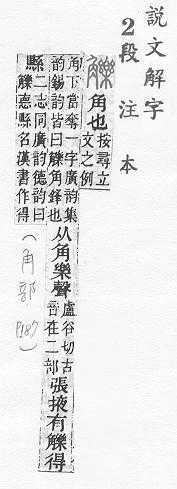 說文解字
2段注本
觻角也按尋立
文之例
角下當奪一字廣韵集
韵錫韵皆曰觻角鋒也
从角樂聲
盧谷切古
音在二部
張掖有觻得
縣二志同廣韵德韵曰
觻悳縣名漢書作得
(角部 P187)